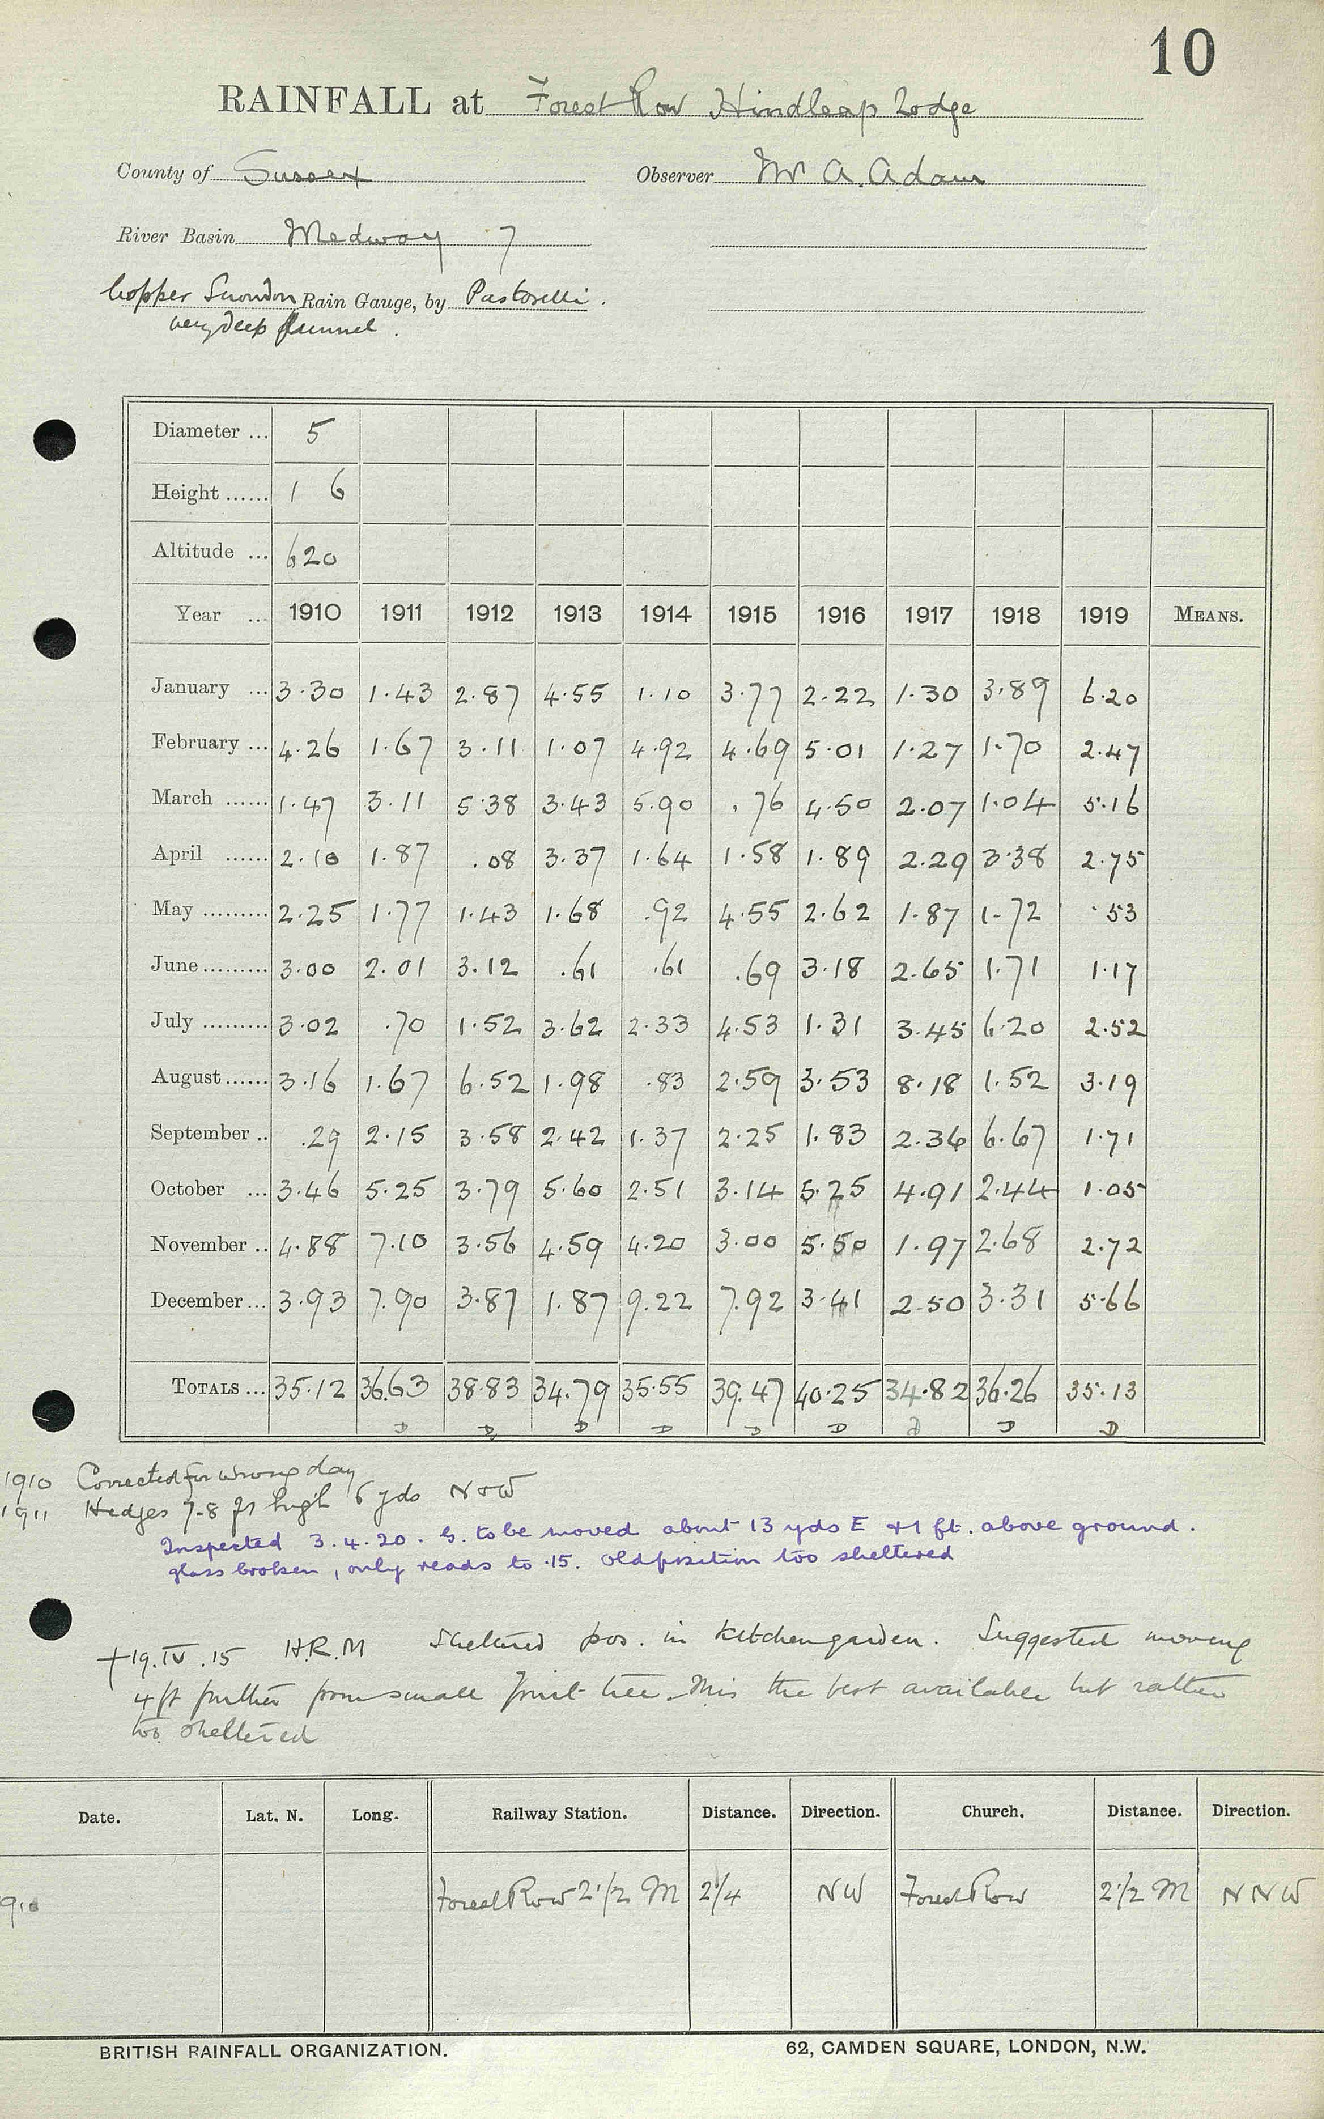 10
RAINFALL at Forest Row Hindleap Lodge
County of Sussex Observer Mr A. Adam
River Basin Medway 7
Copper Snowdon Rain Gauge, by Pastorelli.
very deep funnel.
Diameter ... 5
Height ...... 1 6
Altitude ... 620
Year ... 1910 1911 1912 1913 1914 1915 1916 1917 1918 1919 MEANS.
January ... 3.30 1.43 2.87 4.55 1.10 3.77 2.22 1.30 3.89 6.20
February ... 4.26 1.67 3.11 1.07 4.92 4.69 5.01 1.27 1.70 2.47
March ...... 1.47 3.11 5.38 3.43 5.90 .76 4.50 2.07 1.04 5.16
April ...... 2.10 1.87 .08 3.37 1.64 1.58 1.89 2.29 3.38 2.75
May ......... 2.25 1.77 1.43 1.68 .92 4.55 2.62 1.87 1.72 .53
June ......... 3.00 2.01 3.12 .61 .61 .69 3.18 2.65 1.71 1.17
July ......... 3.02 .70 1.52 3.62 2.33 4.53 1.31 3.45 6.20 2.52
August ...... 3.16 1.67 6.52 1.98 .83 2.59 3.53 8.18 1.52 3.19
September .. .29 2.15 3.58 2.42 1.37 2.25 1.83 2.36 6.67 1.71
October ... 3.46 5.25 3.79 5.60 2.51 3.14 5.25 4.91 2.44 1.05
November .. 4.88 7.10 3.56 4.59 4.20 3.00 5.50 1.97 2.68 2.72
December ... 3.93 7.90 3.87 1.87 9.22 7.92 3.41 2.50 3.31 5.66
TOTALS ... 35.12 36.63 38.83 34.79 35.55 39.47 40.25 34.82 36.26 35.13
D D D D D D D D D
1910 Corrected for wrong day
1911 Hedges 7-8 ft high 6 yds N & W
Inspected 3.4.20. G. to be moved about 13 yds E & 1 ft. above ground.
glass broken, only reads to .15. Old position too sheltered
+19.IV.15 H.R.M Sheltered pos. in kitchen garden. Suggested moving
4 ft further from small fruit tree. This the best available but rather
too sheltered
Date. Lat. N. Long. Railway Station. Distance. Direction. Church. Distance. Direction.
910 Forest Row 2 1/2 M 2 1/4 NW Forest Row 2 1/2 M NNW
BRITISH RAINFALL ORGANIZATION. 62, CAMDEN SQUARE, LONDON, N.W.